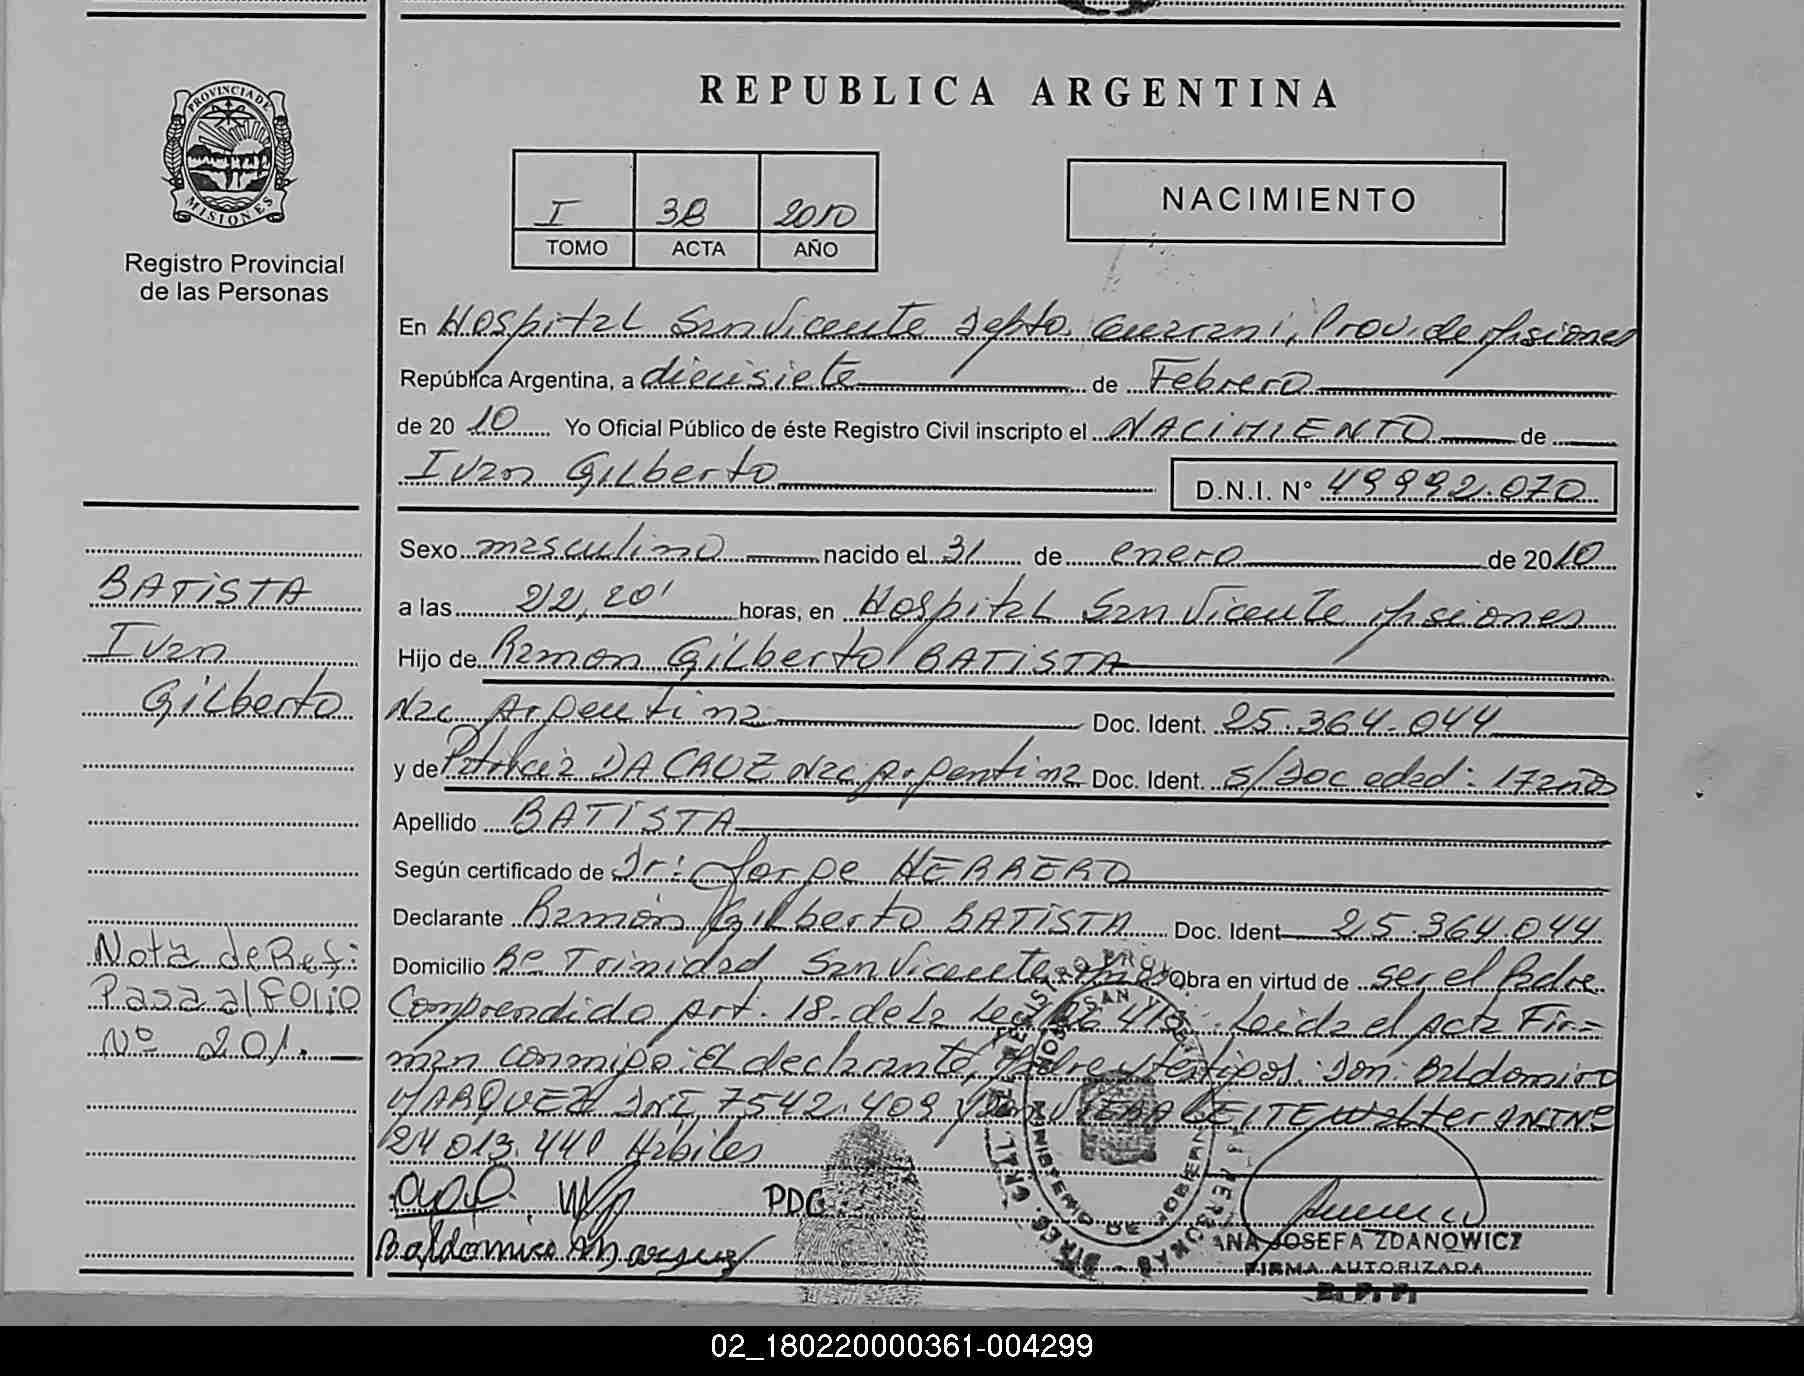 REPUBLICA ARGENTINA
PROVINCIA DE
MISIONES
Registro Provincial
de las Personas
I 38 2010
TOMO ACTA AÑO
NACIMIENTO
En Hospital San Vicente Depto. Guarani, Prov. de Misiones
República Argentina, a diecisiete de Febrero
de 2010 Yo Oficial Público de éste Registro Civil inscripto el NACIMIENTO de
Ivan Gilberto D.N.I. N° 49992.070
Sexo masculino nacido el 31 de enero de 2010
a las 22,20' horas, en Hospital San Vicente Misiones
Hijo de Ramon Gilberto BATISTA
Nac Argentina Doc. Ident. 25.364.044
y de Patricia DA CRUZ Nac Argentina Doc. Ident. s/Doc eded: 17 años
Apellido BATISTA
Según certificado de Dr: Jorge HERRERO
Declarante Ramón Gilberto BATISTA Doc. Ident 25.364.044
Domicilio Bº Trinidad San Vicente Obra en virtud de ser el Padre
Comprendido Art. 18. de la Ley Leida el Acta Fir=
man conmigo: El declarante, Madre y testigos: Don: Baldomiro
MARQUEZ DNI 7542.409 y Don VIERA LEITE Walter DNI Nº
24013.440 Hábiles
PDG
Baldomiro Marquez
ANA JOSEFA ZDANOWICZ
FIRMA AUTORIZADA
R. P. P.
BATISTA
Ivan
Gilberto
Nota de Ref:
Pasa al FOLIO
Nº 201.
MINISTERIO DE GOBIERNO
02_180220000361-004299